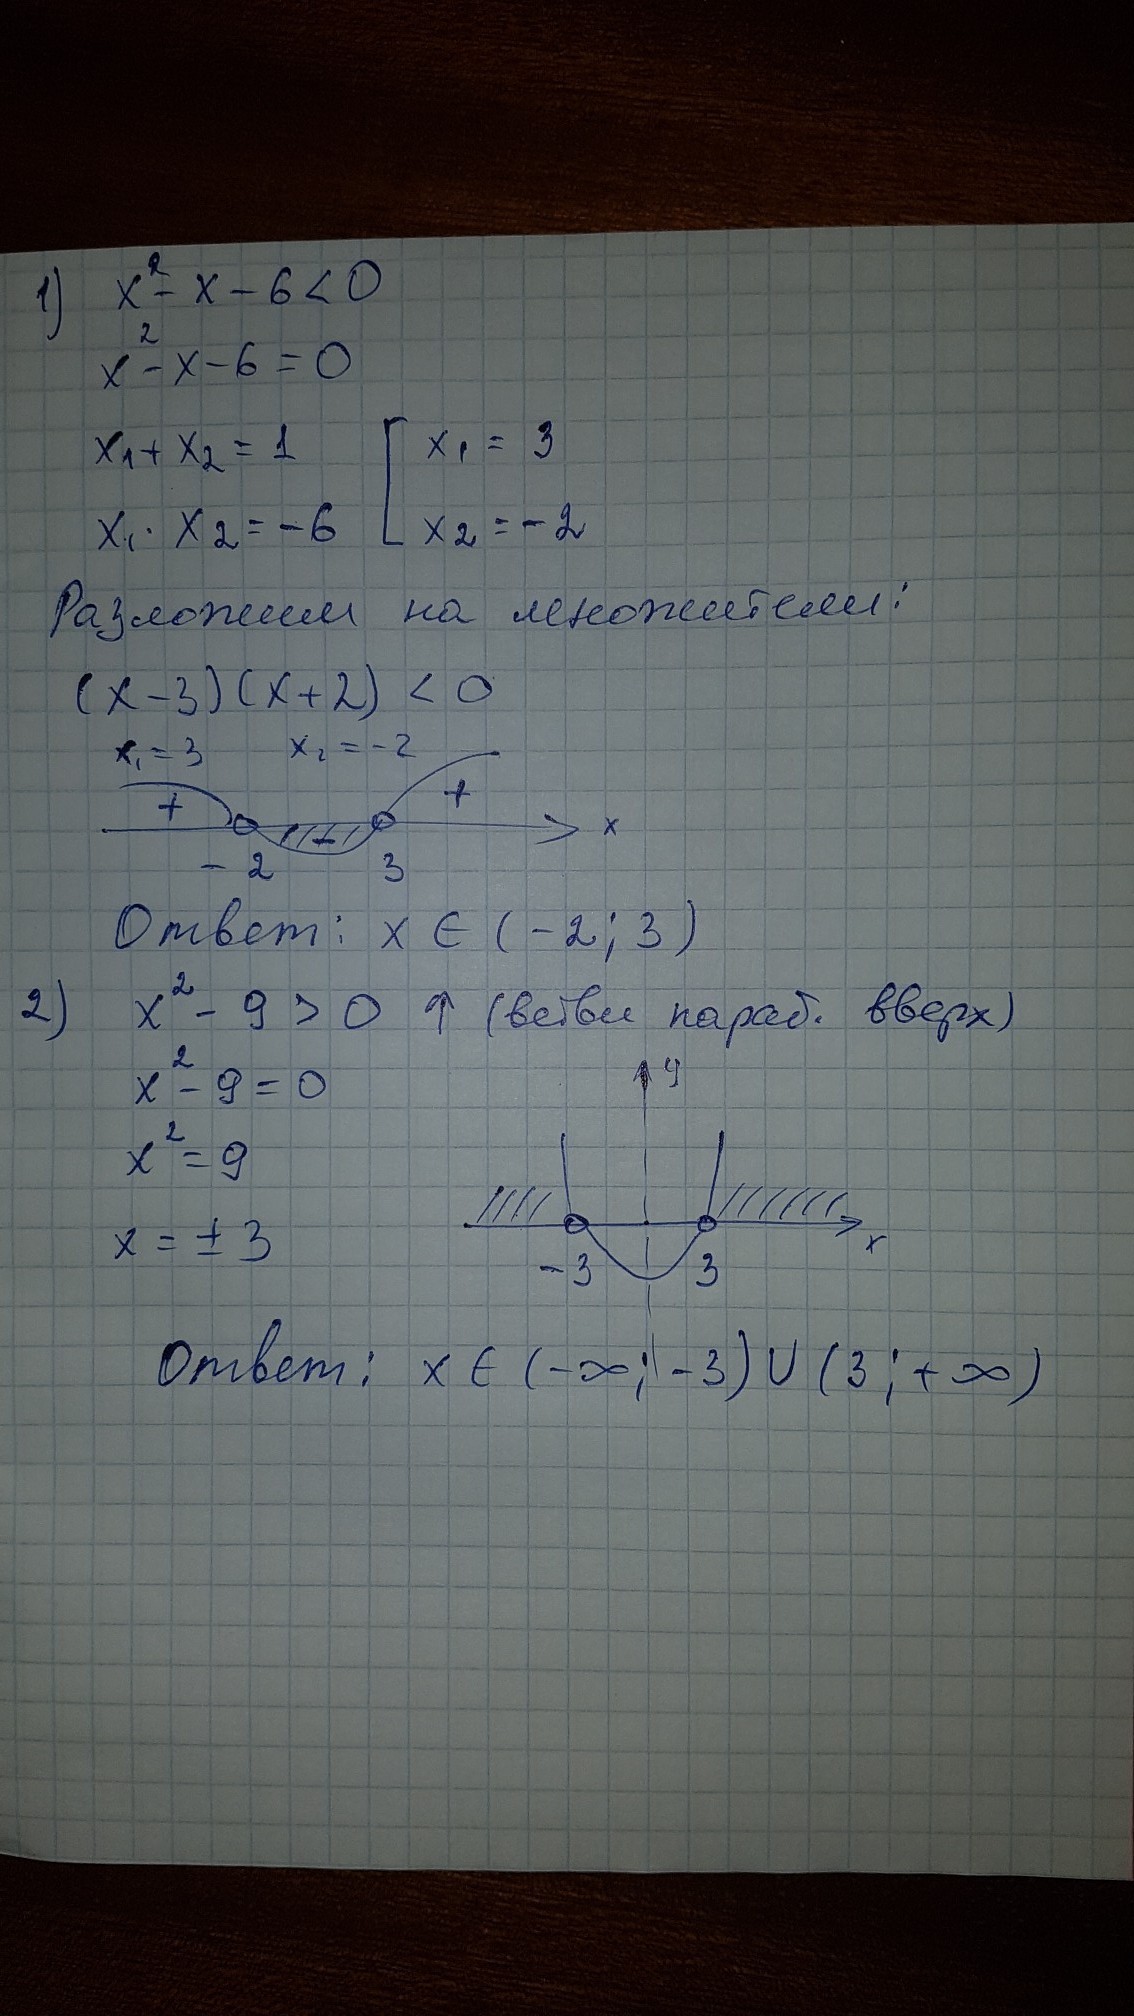 1) x² - x - 6 < 0
x² - x - 6 = 0
x₁ + x₂ = 1 [ x₁ = 3
x₁ · x₂ = -6 x₂ = -2
Разложим на множители:
(x-3)(x+2) < 0
x₁ = 3 x₂ = -2
+ - + x
-2 3
Ответ: x ∈ (-2; 3)
2) x² - 9 > 0 ↑ (ветви параб. вверх)
x² - 9 = 0 y
x² = 9
x = ± 3 x
-3 3
Ответ: x ∈ (-∞; -3) ∪ (3; +∞)